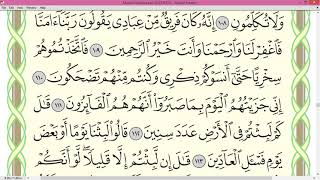 وَلَا تُكَلِّمُونِ ١٠٨ إِنَّهُ كَانَ فَرِيقٌ مِّنْ عِبَادِي يَقُولُونَ رَبَّنَا ءَامَنَّا
فَاغْفِرْ لَنَا وَارْحَمْنَا وَأَنتَ خَيْرُ الرَّاحِمِينَ ١٠٩ فَاتَّخَذْتُمُوهُمْ
سِخْرِيًّا حَتَّىٰ أَنسَوْكُمْ ذِكْرِي وَكُنتُم مِّنْهُمْ تَضْحَكُونَ ١١٠
إِنِّي جَزَيْتُهُمُ الْيَوْمَ بِمَا صَبَرُوا أَنَّهُمْ هُمُ الْفَائِزُونَ ١١١ قَالَ
كَمْ لَبِثْتُمْ فِي الْأَرْضِ عَدَدَ سِنِينَ ١١٢ قَالُوا لَبِثْنَا يَوْمًا أَوْ بَعْضَ
يَوْمٍ فَاسْأَلِ الْعَادِّينَ ١١٣ قَالَ إِن لَّبِثْتُمْ إِلَّا قَلِيلًا لَّوْ أَنَّكُمْ